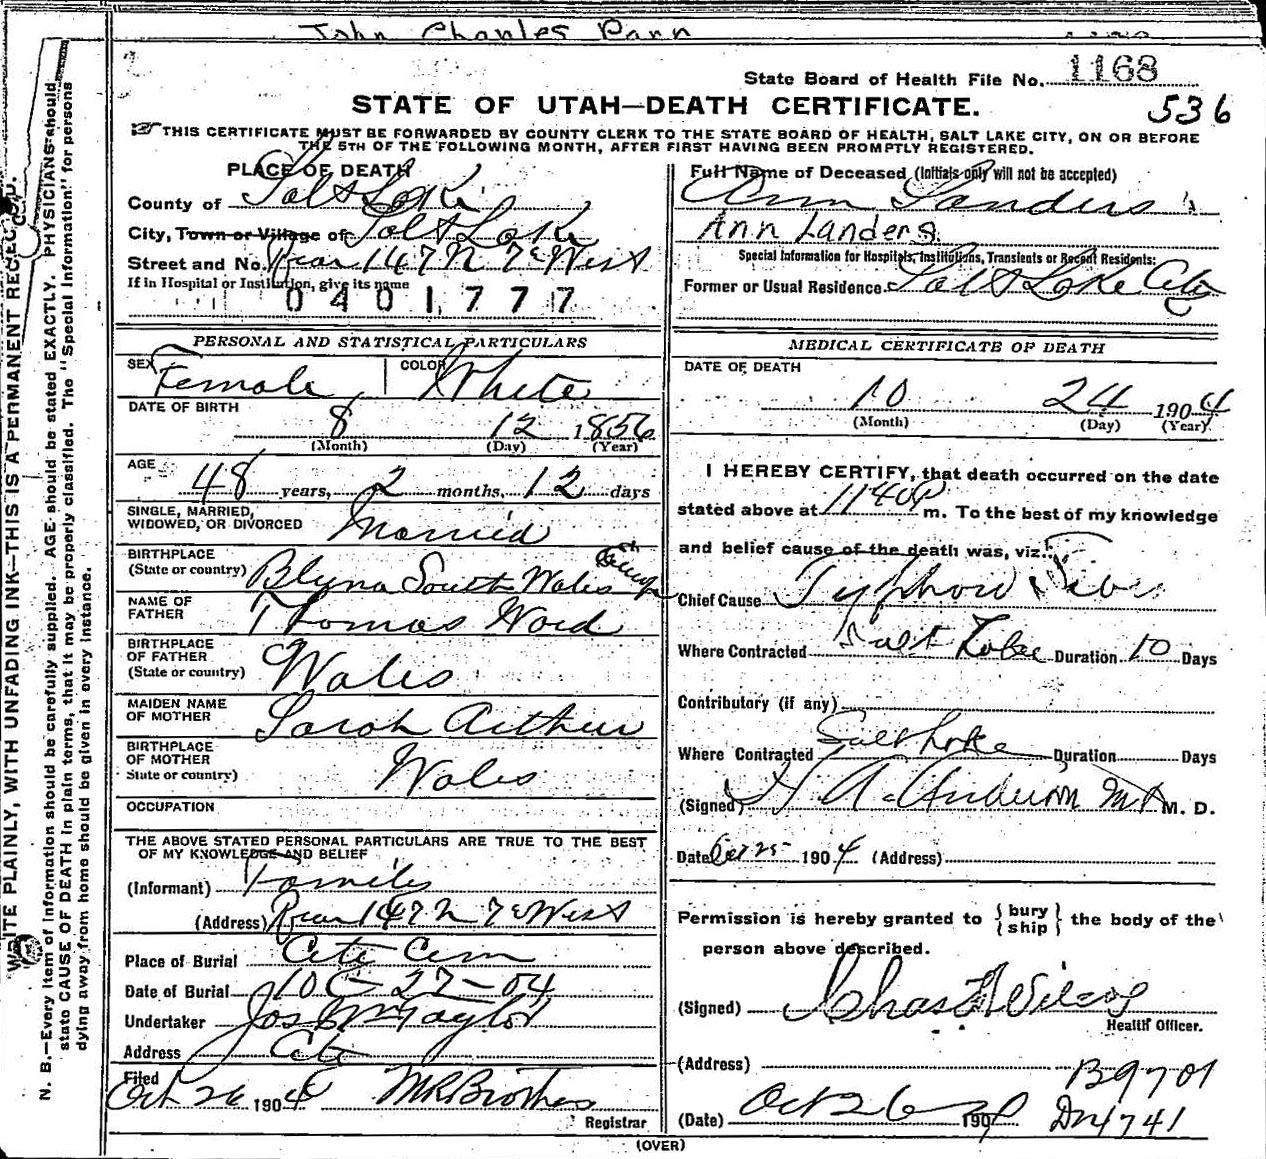 John Charles
State Board of Health File No. 1168
STATE OF UTAH—DEATH CERTIFICATE.
536
THIS CERTIFICATE MUST BE FORWARDED BY COUNTY CLERK TO THE STATE BOARD OF HEALTH, SALT LAKE CITY, ON OR BEFORE
THE 5TH OF THE FOLLOWING MONTH, AFTER FIRST HAVING BEEN PROMPTLY REGISTERED.
PLACE OF DEATH
County of Salt Lake
City, Town or Village of Salt Lake
Street and No. Rear 147 N 7th West
If in Hospital or Institution, give its name
0401777
Full Name of Deceased (Initials only will not be accepted)
Ann Landers
Ann Landers
Special Information for Hospitals, Institutions, Transients or Recent Residents:
Former or Usual Residence Salt Lake City
PERSONAL AND STATISTICAL PARTICULARS
SEX Female COLOR White
DATE OF BIRTH
8 12 1856
(Month) (Day) (Year)
AGE
48 years, 2 months, 12 days
SINGLE, MARRIED,
WIDOWED, OR DIVORCED Married
BIRTHPLACE
(State or country) South Wales
NAME OF
FATHER Thomas Word
BIRTHPLACE
OF FATHER
(State or country) Wales
MAIDEN NAME
OF MOTHER Sarah Arthur
BIRTHPLACE
OF MOTHER
State or country) Wales
OCCUPATION
THE ABOVE STATED PERSONAL PARTICULARS ARE TRUE TO THE BEST
OF MY KNOWLEDGE AND BELIEF
(Informant) Family
(Address) Rear 147 N 7th West
Place of Burial City Cem
Date of Burial 10-27-04
Undertaker Jos Wm Taylor
Address City
Filed
Oct 26 1904
Registrar
MEDICAL CERTIFICATE OF DEATH
DATE OF DEATH
10 24 1904
(Month) (Day) (Year)
I HEREBY CERTIFY, that death occurred on the date
stated above at 1140 P m. To the best of my knowledge
and belief cause of the death was, viz.:
Chief Cause Typhoid Fever
Where Contracted Salt Lake Duration 10 Days
Contributory (if any)
Where Contracted Salt Lake Duration Days
(Signed) A. Anderson M. D.
Date Oct 25 1904 (Address)
Permission is hereby granted to { bury ship } the body of the
person above described.
(Signed) Chas Wilcox
Health Officer.
(Address)
B9701
(Date) Oct 26 1904
4741
(OVER)
WRITE PLAINLY, WITH UNFADING INK—THIS IS A PERMANENT RECORD.
N. B.—Every item of information should be carefully supplied. AGE should be stated EXACTLY. PHYSICIANS should
state CAUSE OF DEATH in plain terms, that it may be properly classified. The "Special Information" for persons
dying away from home should be given in every instance.